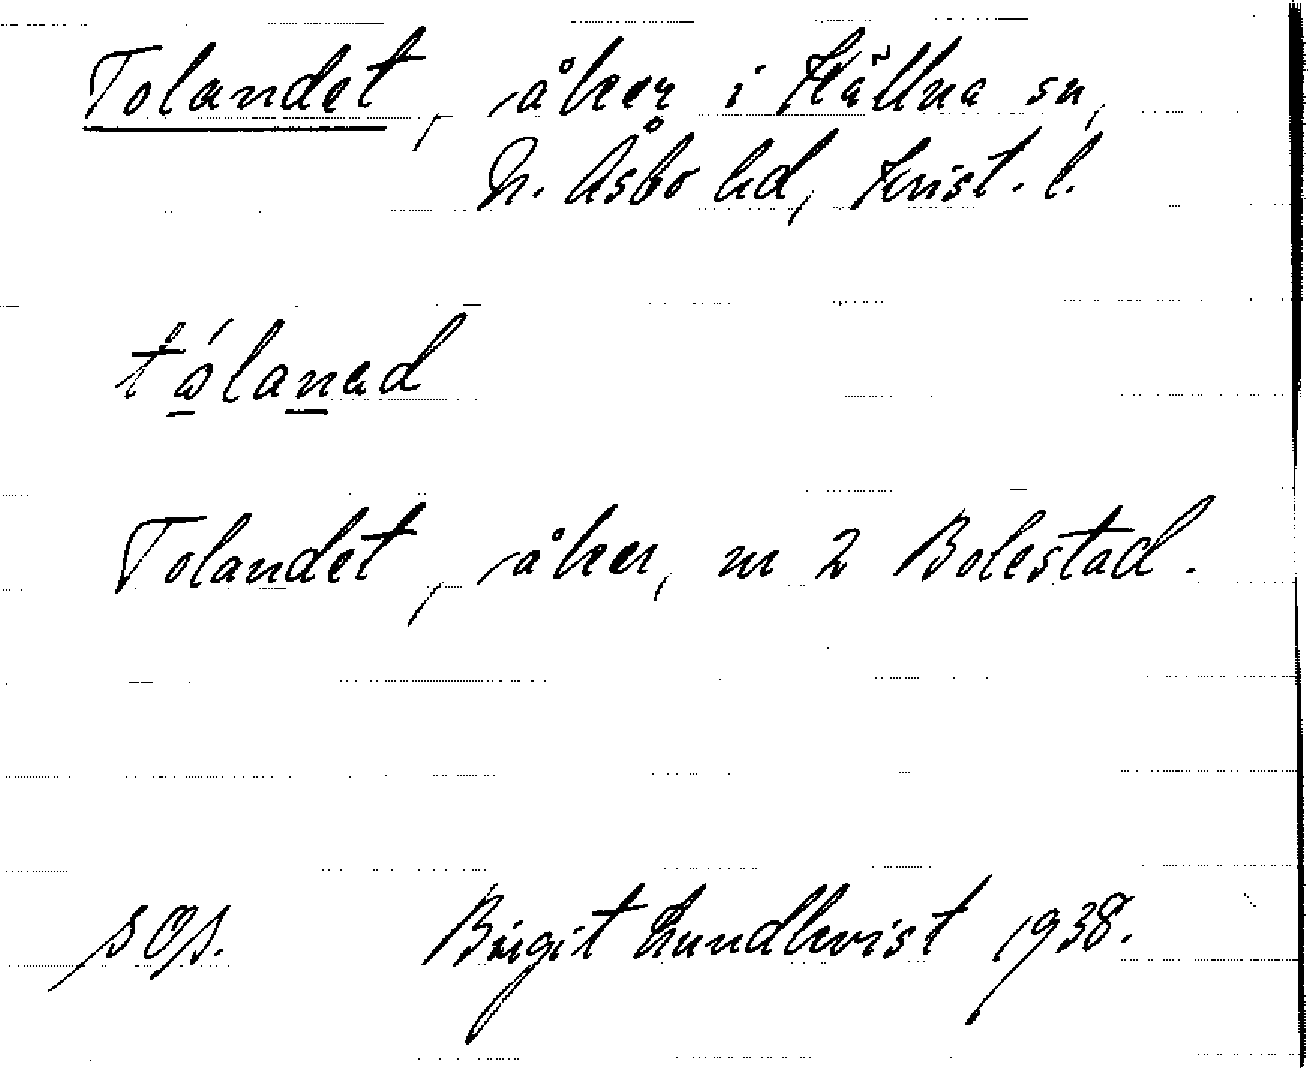 Tolandet, åker i Hällna sn,
N. Åsbo hd, Krist. l.
tólanad
Tolandet, åker, nr 2 Bolestad.
Birgit Lundkvist 1938.